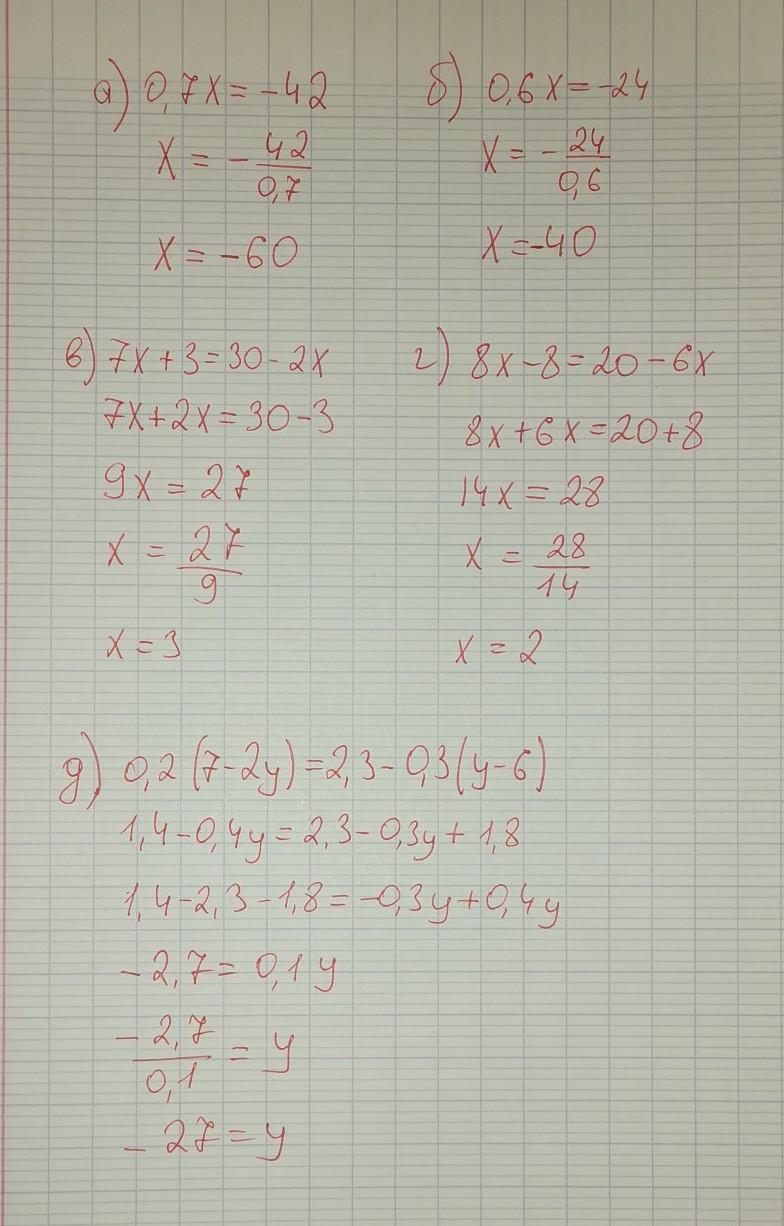 а) 0,7x = -42
x = - 42/0,7
x = -60
б) 0,6x = -24
x = - 24/0,6
x = -40
в) 7x + 3 = 30 - 2x
7x + 2x = 30 - 3
9x = 27
x = 27/9
x = 3
г) 8x - 8 = 20 - 6x
8x + 6x = 20 + 8
14x = 28
x = 28/14
x = 2
д) 0,2 (7 - 2y) = 2,3 - 0,3 (y - 6)
1,4 - 0,4y = 2,3 - 0,3y + 1,8
1,4 - 2,3 - 1,8 = -0,3y + 0,4y
-2,7 = 0,1y
-2,7/0,1 = y
-27 = y